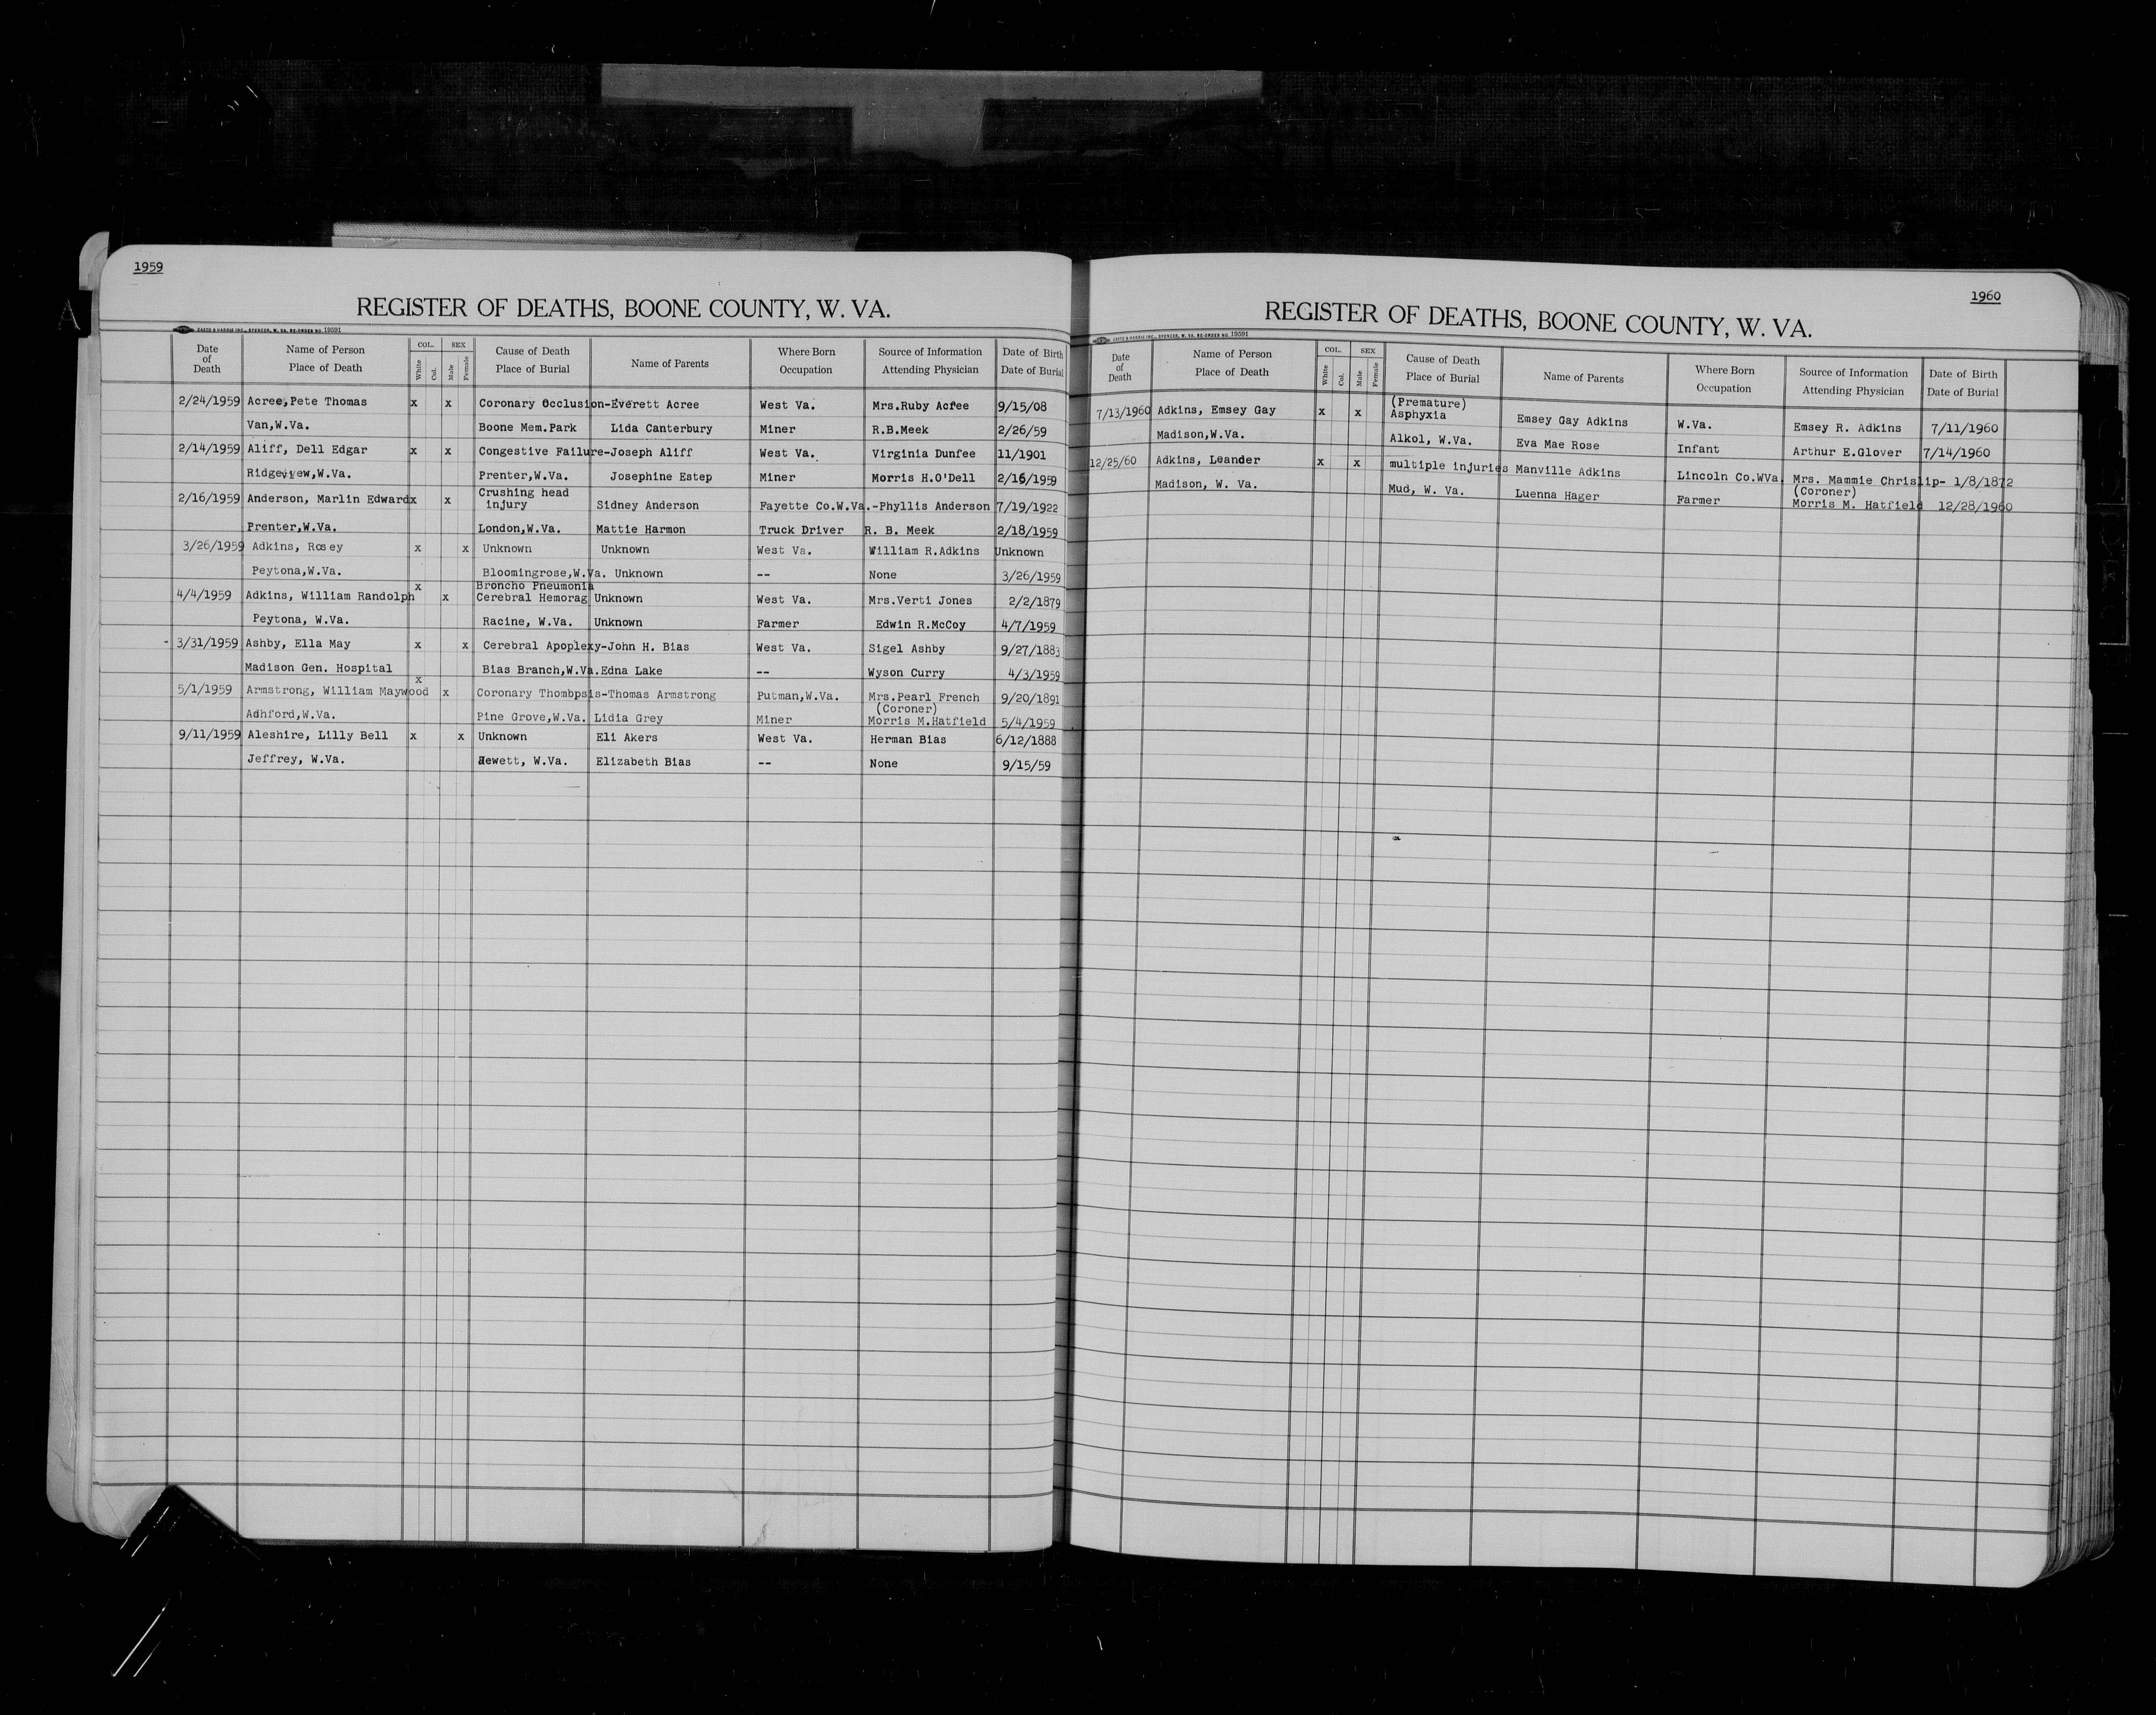 1959
REGISTER OF DEATHS, BOONE COUNTY, W. VA.
CASTO & HARRIS INC., SPENCER, W. VA. RE-ORDER NO. 19591
Date of Death
Name of Person
Place of Death
COL.
White
Col.
SEX
Male
Female
Cause of Death
Place of Burial
Name of Parents
Where Born
Occupation
Source of Information
Attending Physician
Date of Birth
Date of Burial
2/24/1959 Acree,Pete Thomas x x Coronary Occlusion-Everett Acree West Va. Mrs.Ruby Acree 9/15/08
Van,W.Va. Boone Mem.Park Lida Canterbury Miner R.B.Meek 2/26/59
2/14/1959 Aliff, Dell Edgar x x Congestive Failure-Joseph Aliff West Va. Virginia Dunfee 11/1901
Ridgeview,W.Va. Prenter,W.Va. Josephine Estep Miner Morris H.O'Dell 2/16/1959
2/16/1959 Anderson, Marlin Edward x x Crushing head injury Sidney Anderson Fayette Co.W.Va.-Phyllis Anderson 7/19/1922
Prenter,W.Va. London,W.Va. Mattie Harmon Truck Driver R. B. Meek 2/18/1959
3/26/1959 Adkins, Rosey x x Unknown Unknown West Va. William R.Adkins Unknown
Peytona,W.Va. Bloomingrose,W.Va. Unknown -- None 3/26/1959
x Broncho Pneumonia
4/4/1959 Adkins, William Randolph x Cerebral Hemorag Unknown West Va. Mrs.Verti Jones 2/2/1879
Peytona, W.Va. Racine, W.Va. Unknown Farmer Edwin R.McCoy 4/7/1959
- 3/31/1959 Ashby, Ella May x x Cerebral Apoplexy-John H. Bias West Va. Sigel Ashby 9/27/1883
Madison Gen. Hospital Bias Branch,W.Va.Edna Lake -- Wyson Curry 4/3/1959
x
5/1/1959 Armstrong, William Maywood x Coronary Thombpsis-Thomas Armstrong Putman,W.Va. Mrs.Pearl French 9/20/1891
(Coroner)
Adhford,W.Va. Pine Grove,W.Va. Lidia Grey Miner Morris M.Hatfield 5/4/1959
9/11/1959 Aleshire, Lilly Bell x x Unknown Eli Akers West Va. Herman Bias 6/12/1888
Jeffrey, W.Va. Hewett, W.Va. Elizabeth Bias -- None 9/15/59
1960
REGISTER OF DEATHS, BOONE COUNTY, W. VA.
CASTO & HARRIS INC., SPENCER, W. VA. RE-ORDER NO. 19591
Date of Death
Name of Person
Place of Death
COL.
White
Col.
SEX
Male
Female
Cause of Death
Place of Burial
Name of Parents
Where Born
Occupation
Source of Information
Attending Physician
Date of Birth
Date of Burial
(Premature)
7/13/1960 Adkins, Emsey Gay x x Asphyxia Emsey Gay Adkins W.Va. Emsey R. Adkins 7/11/1960
Madison,W.Va. Alkol, W.Va. Eva Mae Rose Infant Arthur E.Glover 7/14/1960
12/25/60 Adkins, Leander x x multiple injuries Manville Adkins Lincoln Co.WVa. Mrs. Mammie Chrislip- 1/8/1872
(Coroner)
Madison, W. Va. Mud, W. Va. Luenna Hager Farmer Morris M. Hatfield 12/28/1960
A